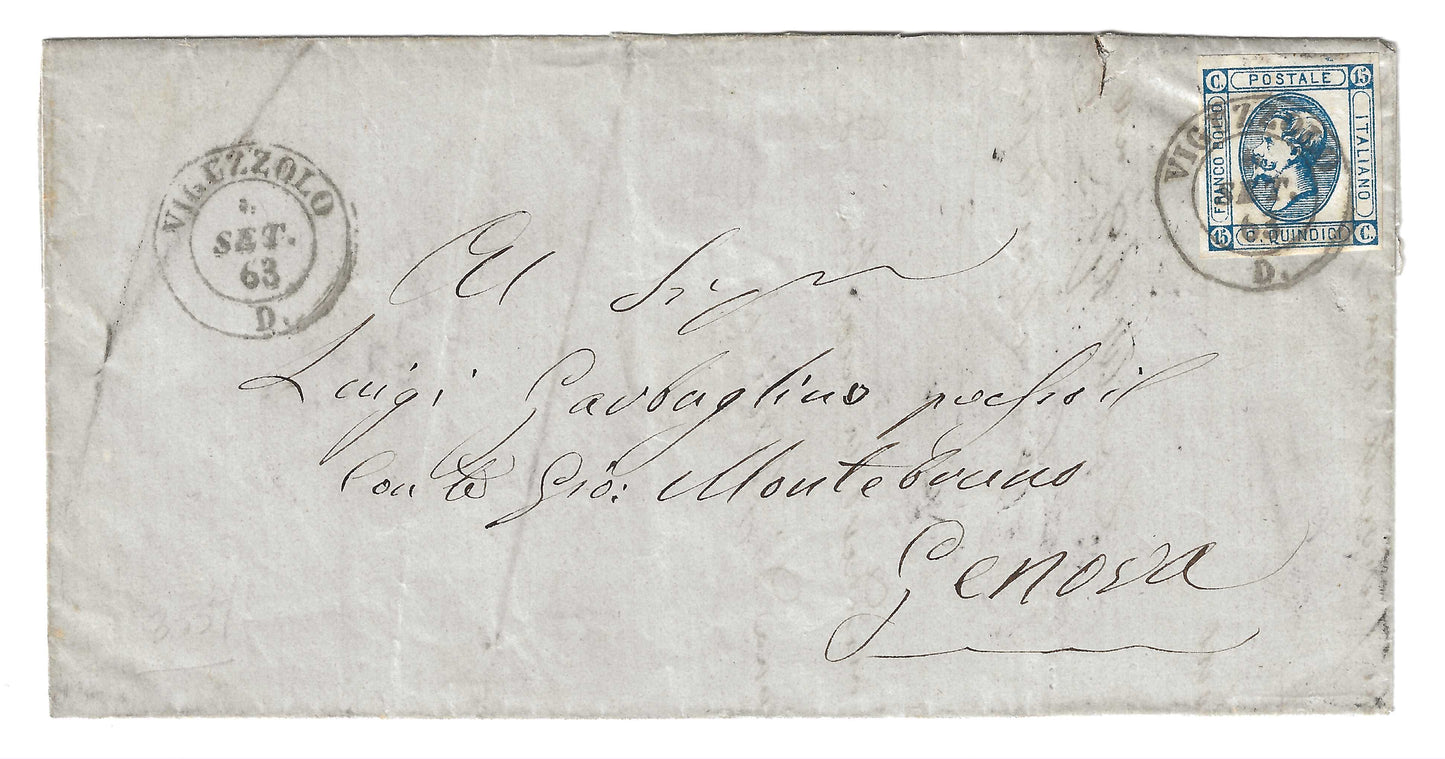 C. POSTALE 15
FRANCO BOLLO
ITALIANO
15 C. QUINDICI C.
VIGEZZOLO
SET.
63
D.
VIG
SET.
63
D.
Al Sigr
Luigi Garbaglino presso il
Conte Gio: Montebruno
Genova